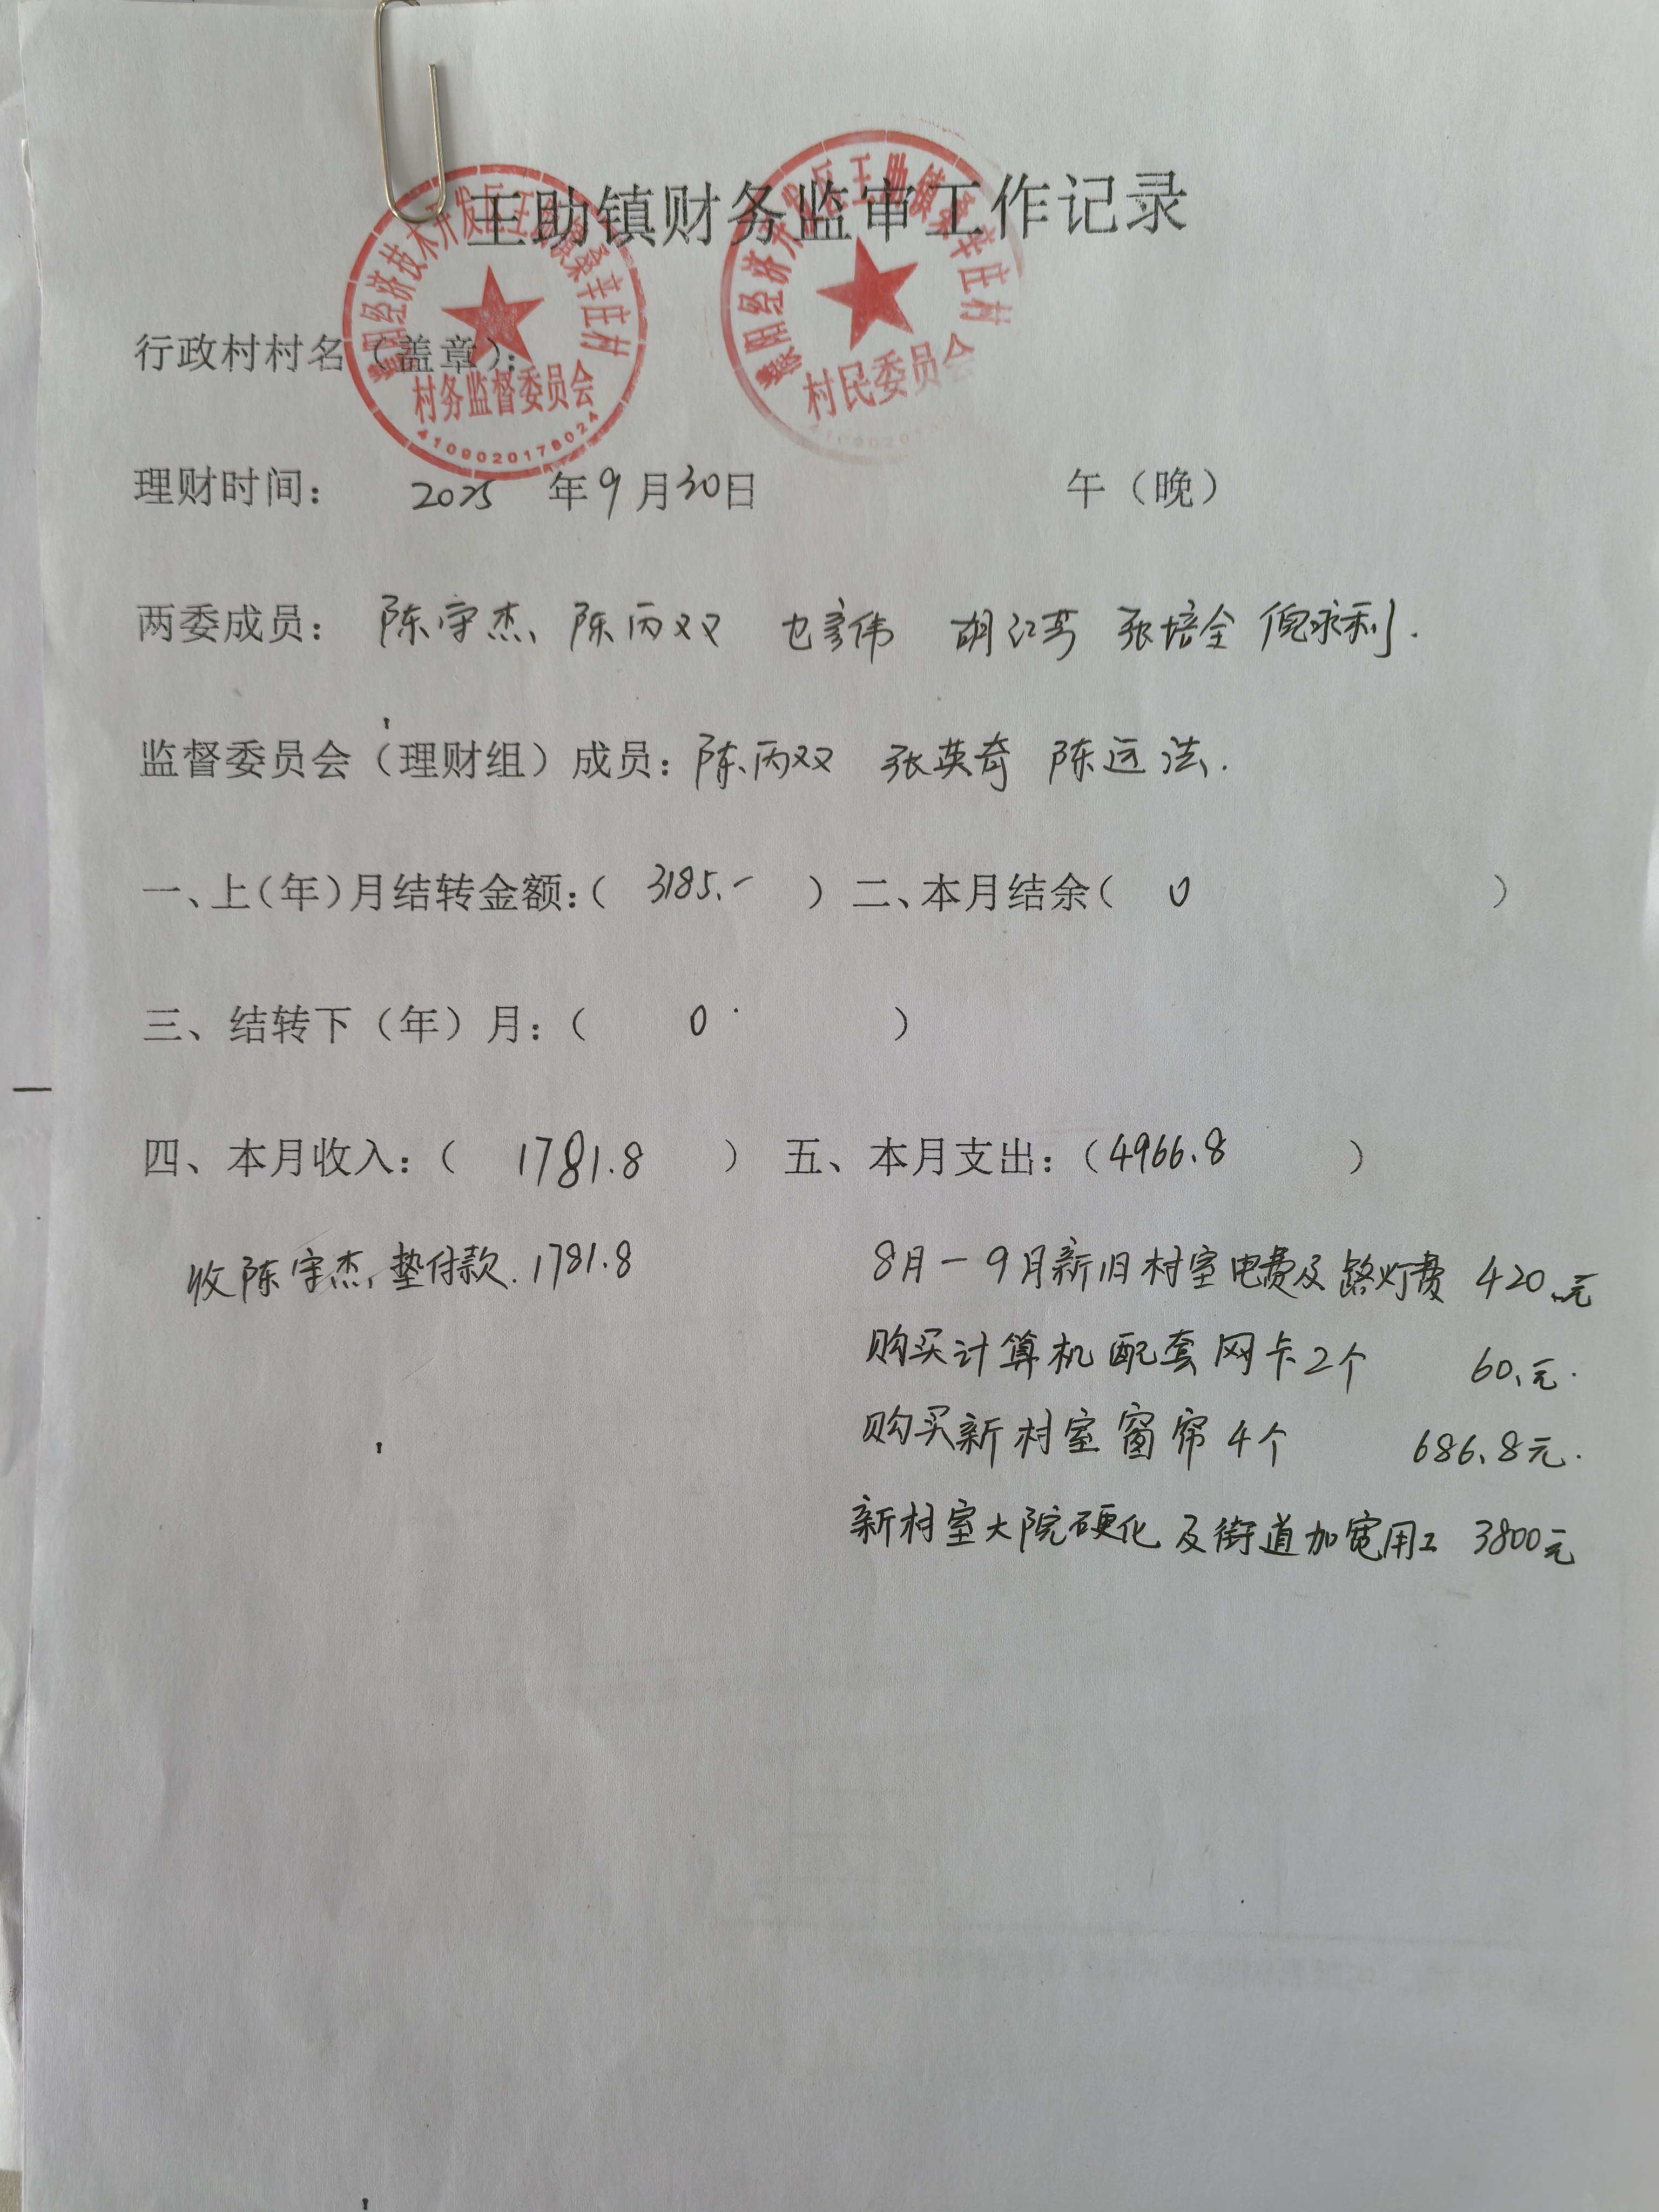 王助镇财务监审工作记录
濮阳经济技术开发区王助镇桑辛庄村
村务监督委员会
4109020178024
濮阳经济开发区王助镇桑辛庄村
村民委员会
行政村村名（盖章）：
理财时间： 2025 年 9 月 30 日 午（晚）
两委成员： 陈守杰、陈丙双 彦伟 胡江芳 张培全 倪永利.
监督委员会（理财组）成员：陈丙双 张英奇 陈远法.
一、上（年）月结转金额：（ 3185.- ） 二、本月结余（ 0 ）
三、结转下（年）月：（ 0 ）
四、本月收入：（ 1781.8 ） 五、本月支出：（4966.8 ）
收陈守杰垫付款.1781.8
8月-9月新旧村室电费及路灯费 420.元
购买计算机配套网卡2个 60.元.
购买新村室窗帘4个 686.8元.
新村室大院硬化及街道加宽用工 3800元